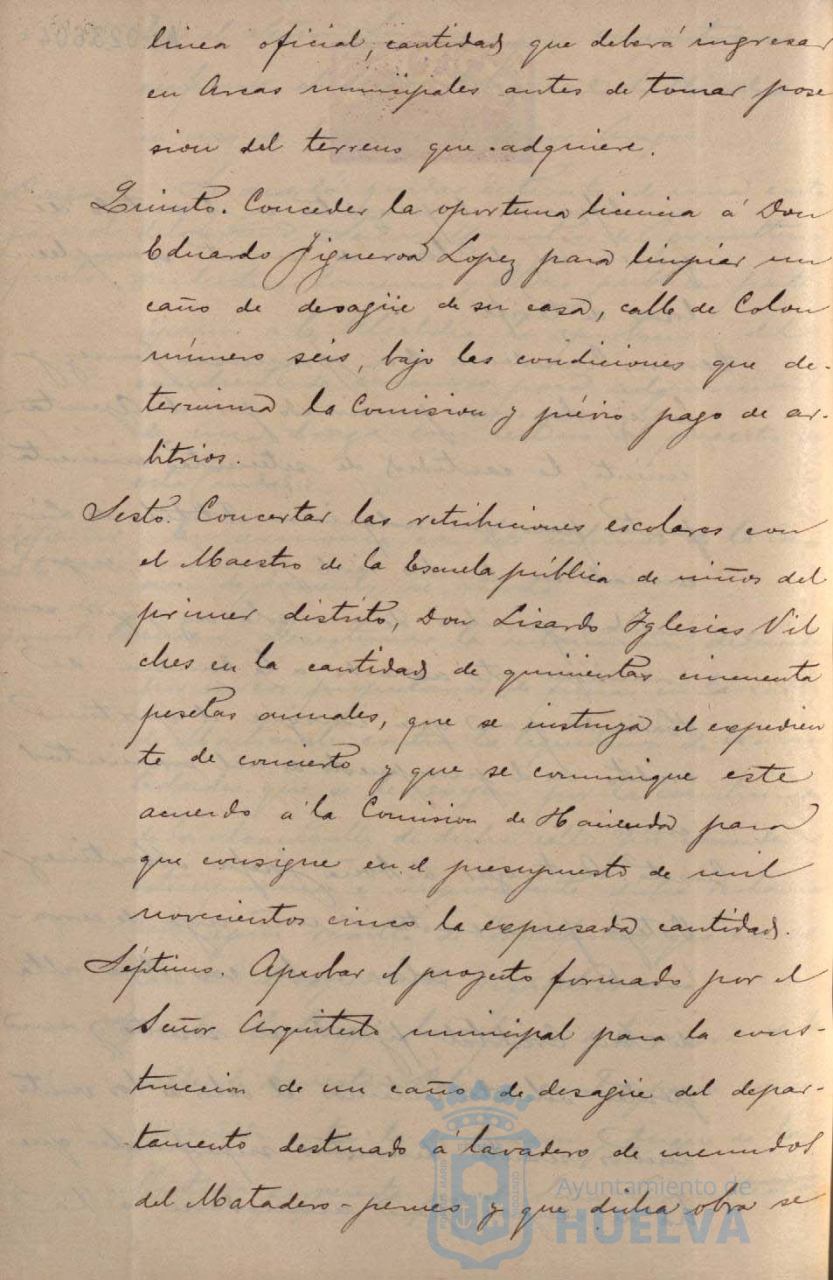 linea oficial, cantidad que deberá ingresar
en Arcas municipales antes de tomar pose
sion del terreno que adquiere.
Quinto. Conceder la oportuna licencia á Don
Eduardo Figueroa Lopez para limpiar un
caño de desagüe de su casa, calle de Colon
número seis, bajo las condiciones que de-
termina la Comision y prévio pago de ar-
bitrios.
Sesto. Concertar las retribuciones escolares con
el Maestro de la Escuela pública de niños del
primer distrito, Don Lisardo Iglesias Vil
ches en la cantidad de quinientas cincuenta
pesetas anuales, que se instruya el expedien
te de concierto y que se comunique este
acuerdo á la Comision de Hacienda para
que consigne en el presupuesto de mil
novecientos cinco la expresada cantidad.
Séptimo. Aprobar el proyecto formado por el
Señor Arquitecto municipal para la cons-
truccion de un caño de desagüe del depar-
tamento destinado á lavadero de menudos
del Matadero- y que dicha obra se
Ayuntamiento de
HUELVA